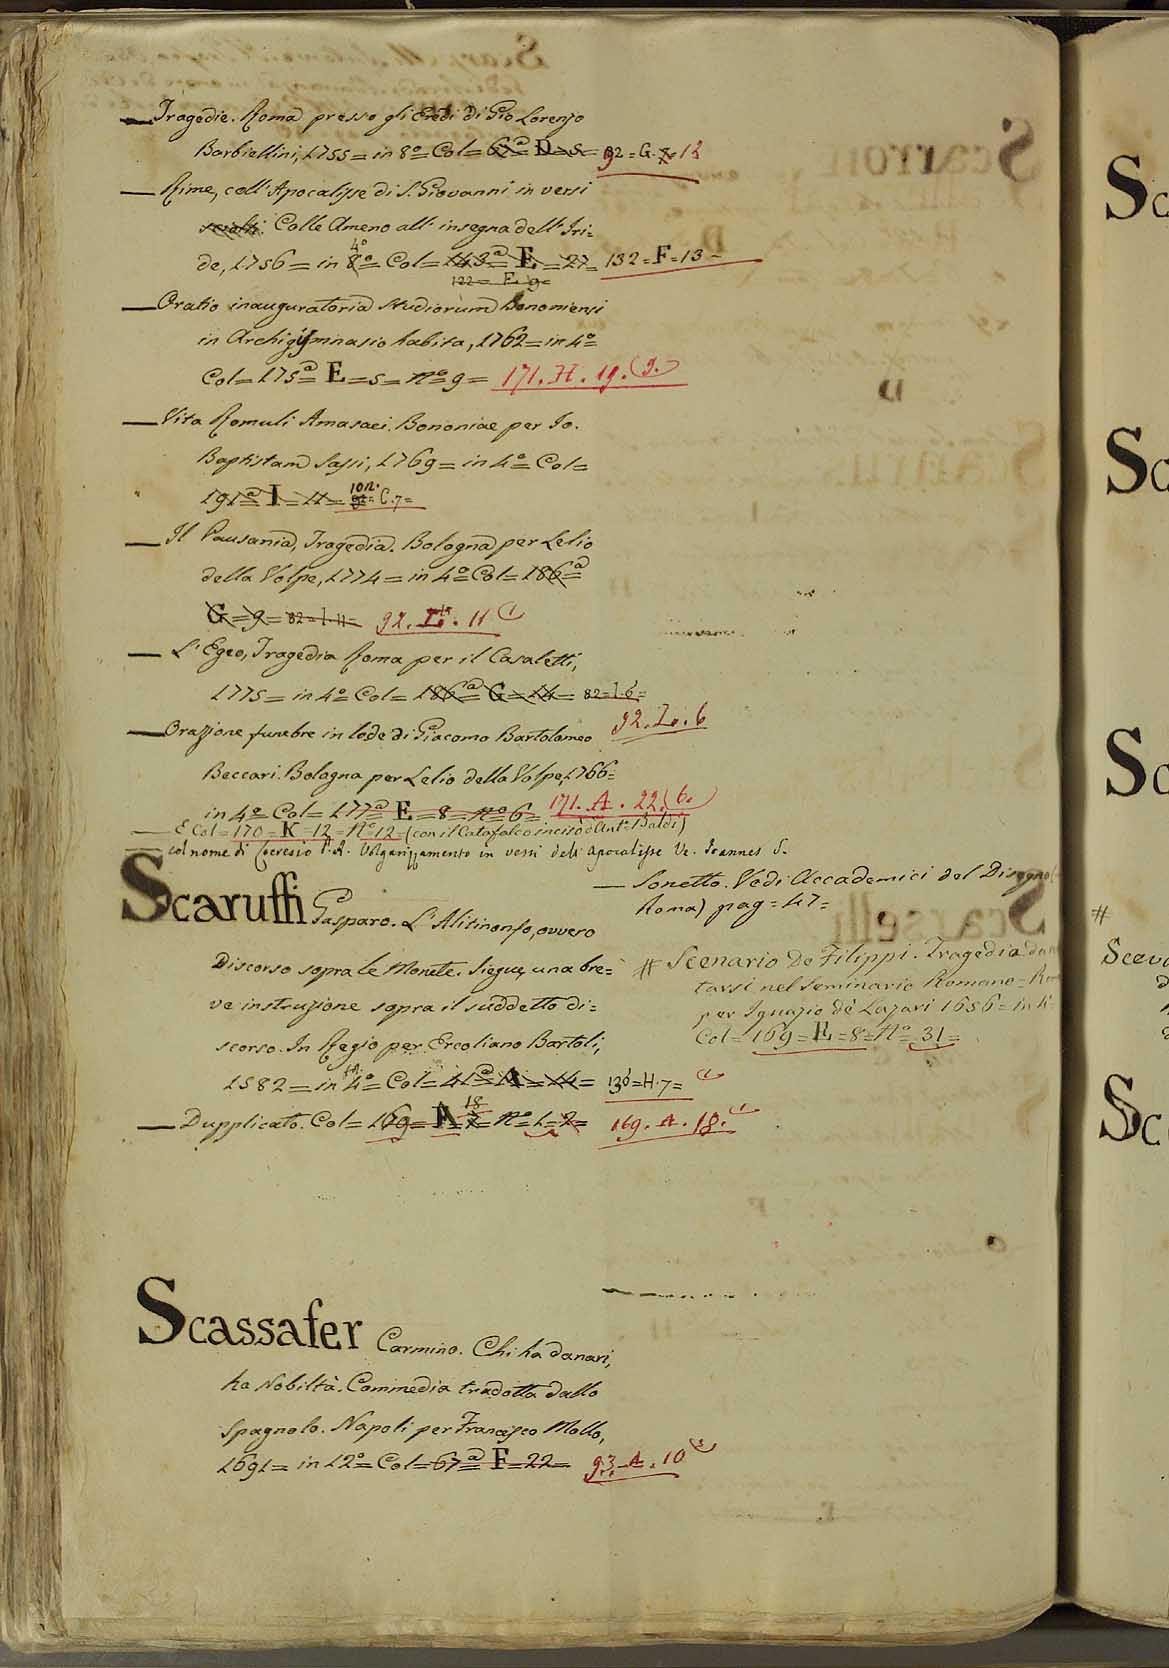 — Tragedie. Roma presso gli Eredi di Gio Lorenzo
Barbiellini, 1755 = in 8º = Col = 62ª = D = 5 = 92 = G. 12
— Rime, coll' Apocalisse di S. Giovanni in versi
sciolti. Colle Ameno all' insegna dell' Iri=
4º
de, 1756 = in 8º = Col = 143ª = E = 27 = 132 = F = 13 -
122 = F. 9 =
— Oratio inauguratoria Studiorum Bononiensi
in Archigymnasio habita, 1762 = in 4º =
Col = 175ª = E = 5 = nº = 9 = 171. H. 19. (9.)
— Vita Romuli Amasaei. Bononiae per Jo.
Baptistam Sassi, 1769 = in 4º = Col =
191ª = I = 11 = 102. = C. 7 =
— Il Pausania, Tragedia. Bologna per Lelio
della Volpe, 1774 = in 4º = Col = 186ª =
G = 9 = 82 = I. 11 = 92. 11 (1
— L' Egeo, Tragedia Roma per il Casaletti,
1775 = in 4º = Col = 186ª = G = 14 = 82 = I. 6 =
92. L. 6
— Orazione funebre in lode di Giacomo Bartolomeo
Beccari. Bologna per Lelio della Volpe, 1766 =
in 4º = Col = 177ª = E = 8 = nº 6 = 171. A. 22. (6.)
— E Col = 170 = K = 12 = Nº 12 = (con il Catafalco inciso d'Ant.º Baldi)
— col nome di Ceresio P. A. Volgarizzamento in versi dell' Apocalisse Ve. Joannes S.
— Sonetto. Vedi Accademici del Disegno (
Roma) pag = 47 =
Scaruffi Gasparo. L' Alitinonfo, ovvero
Discorso sopra le Monete. Siegue, una bre=
ve instruzione sopra il suddetto di=
scorso. In Regio per Ercoliano Bartoli,
1582 = in 4º = Col = 41ª = A = 14 = 136 = H. 7 = (1
18
— Dupplicato. Col = 169 = A = 7 = nº = 1 = 2 = 169. A. 18. (1
# Scenario De Filippi. Tragedia da
tarsi nel Seminario Romano =
per Ignazio de' Lazari 1656 = in 4
Col = 169 = E = 8 = Nº 31 =
Scassafer Carmino. Chi ha danari,
ha Nobiltà. Commedia tradotta dallo
Spagnolo. Napoli per Francesco Mollo,
1691 = in 12º = Col = 67ª = F = 22 = 93. A. 10
Sc
Sc
Sc
#
Scev
Sc